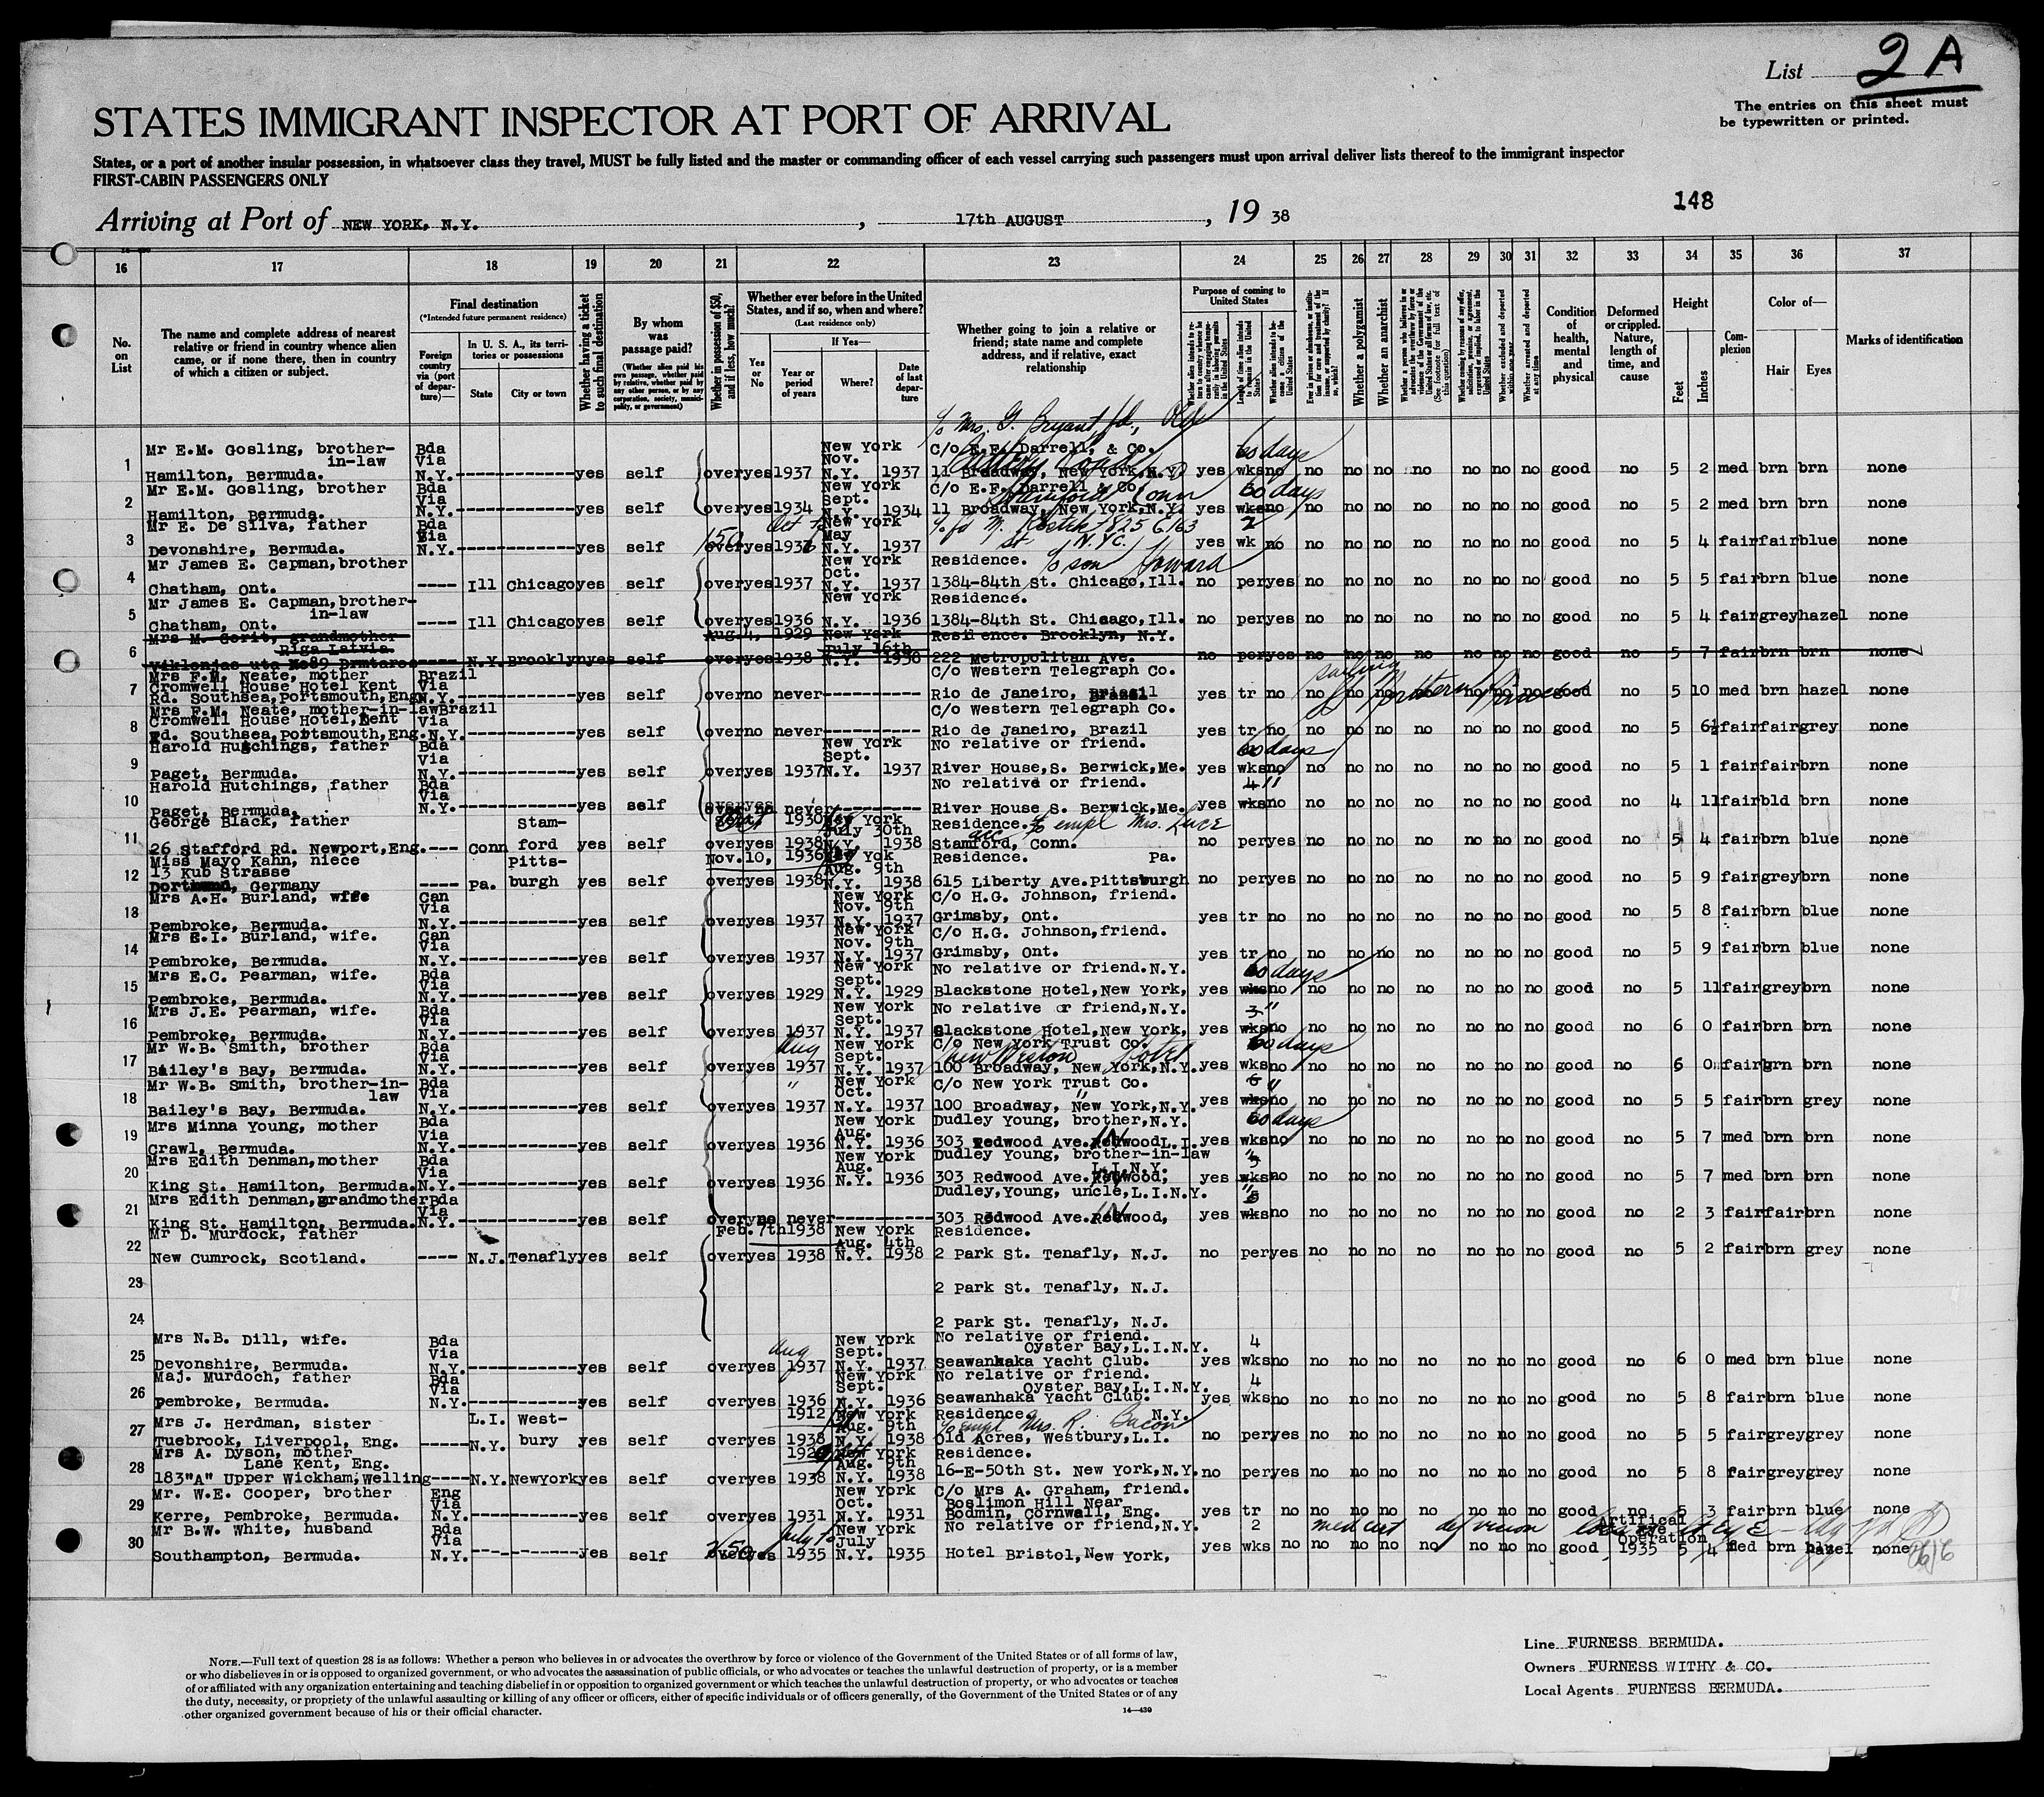 List 2 A
The entries on this sheet must
be typewritten or printed.
STATES IMMIGRANT INSPECTOR AT PORT OF ARRIVAL
States, or a port of another insular possession, in whatsoever class they travel, MUST be fully listed and the master or commanding officer of each vessel carrying such passengers must upon arrival deliver lists thereof to the immigrant inspector
FIRST-CABIN PASSENGERS ONLY
148
Arriving at Port of NEW YORK, N.Y. , 17th AUGUST , 19 38
16 17 18 19 20 21 22 23 24 25 26 27 28 29 30 31 32 33 34 35 36 37
No. on List
The name and complete address of nearest relative or friend in country whence alien came, or if none there, then in country of which a citizen or subject.
Final destination
(*Intended future permanent residence)
Foreign country via (port of departure)—
In U. S. A., its territories or possessions
State City or town
Whether having a ticket to such final destination
By whom was passage paid?
(Whether alien paid his own passage, whether paid by relative, whether paid by any other person, or by any corporation, society, municipality, or government)
Whether in possession of $50, and if less, how much?
Whether ever before in the United States, and if so, when and where?
(Last residence only)
Yes or No
If Yes—
Year or period of years
Where?
Date of last departure
Whether going to join a relative or friend; state name and complete address, and if relative, exact relationship
Purpose of coming to United States
Whether a polygamist
Whether an anarchist
Condition of health, mental and physical
Deformed or crippled. Nature, length of time, and cause
Height
Feet Inches
Complexion
Color of—
Hair Eyes
Marks of identification
c/o Mrs. G. Bryant,
Mr E.M. Gosling, brother- Bda New York C/o E.F. Darrell, & Co. 60 days
in-law Via Nov.
1 Hamilton, Bermuda. N.Y. yes self over yes 1937 N.Y. 1937 11 Broadway, New York,N.Y. yes wks no no no no no no no no good no 5 2 med brn brn none
Mr E.M. Gosling, brother Bda New York C/o E.F. Darrell & Co. 60 days
Via Sept.
2 Hamilton, Bermuda. N.Y. over yes 1934 N.Y. 1934 11 Broadway, New York,N.Y. yes wks no no no no no no no no good no 5 2 med brn brn none
Mr E. De Silva, father Bda Oct New York
150 Via May
3 Devonshire, Bermuda. N.Y. yes self over yes 1937 N.Y. 1937 yes wk no no no no no no no no good no 5 4 fair fair blue none
Mr James E. Capman,brother New York Residence. to son Howard
Oct.
4 Chatham, Ont. ---- Ill Chicago yes self over yes 1937 N.Y. 1937 1384-84th St. Chicago,Ill. no per yes no no no no no no no good no 5 5 fair brn blue none
Mr James E. Capman,brother- New York Residence.
in-law
5 Chatham, Ont. ---- Ill Chicago yes self over yes 1936 N.Y. 1936 1384-84th St. Chicago,Ill. no per yes no no no no no no no good no 5 4 fair grey hazel none
Mrs M. Gorit, grandmother Aug.4, 1929 New York Residence. Brooklyn, N.Y.
Riga Latvia. July 16th
6 ---- N.Y. Brooklyn yes self over yes 1938 N.Y. 1938 222 Metropolitan Ave. no per yes no no no no no no no good no 5 7 fair brn brn none
Mrs F.M. Neate, mother Brazil C/o Western Telegraph Co.
Cromwell House Hotel Kent Via
7 Rd. Southsea,Portsmouth,Eng. N.Y. yes self over no never Rio de Janeiro, Brazil yes tr no no no no no no no no good no 5 10 med brn hazel none
Mrs F.M. Neate, mother-in-law Brazil C/o Western Telegraph Co.
Cromwell House Hotel,Kent Via
8 Rd. Southsea,Portsmouth,Eng. N.Y. yes self over no never Rio de Janeiro, Brazil yes tr no no no no no no no no good no 5 6½ fair fair grey none
Harold Hutchings, father Bda New York No relative or friend. 60 days
Via Sept.
9 Paget, Bermuda. N.Y. yes self over yes 1937 N.Y. 1937 River House,S. Berwick,Me. yes wks no no no no no no no no good no 5 1 fair fair brn none
Harold Hutchings, father Bda No relative or friend.
Via
10 Paget, Bermuda. N.Y. yes self over no never River House S. Berwick,Me. yes wks no no no no no no no no good no 4 11 fair bld brn none
George Black, father Stam- 1930 New York Residence. to empl Mrs. Luce
July 30th
11 26 Stafford Rd. Newport,Eng. --- Conn ford yes self over yes 1938 N.Y. 1938 Stamford, Conn. no per yes no no no no no no no good no 5 4 fair brn blue none
Miss Mayo Kahn, niece Pitts- Nov.10, 1936 New Yok Residence. Pa.
13 Kub Strasse Aug. 9th
12 Dortmund, Germany ---- Pa. burgh yes self over yes 1938 N.Y. 1938 615 Liberty Ave.Pittsburgh no per yes no no no no no no no good no 5 9 fair grey brn none
Mrs A.H. Burland, wife Can New York C/o H.G. Johnson, friend.
Via Nov. 9th
13 Pembroke, Bermuda. N.Y. yes self over yes 1937 N.Y. 1937 Grimsby, Ont. yes tr no no no no no no no no good no 5 8 fair brn blue none
Mrs E.I. Burland, wife. Can New York C/o H.G. Johnson,friend.
Via Nov. 9th
14 Pembroke, Bermuda. N.Y. yes self over yes 1937 N.Y. 1937 Grimsby, Ont. yes tr no no no no no no no no good no 5 9 fair brn blue none
Mrs E.C. Pearman, wife. Bda New York No relative or friend.N.Y. 60 days
Via Sept.
15 Pembroke, Bermuda. N.Y. yes self over yes 1929 N.Y. 1929 Blackstone Hotel,New York, yes wks no no no no no no no no good no 5 11 fair grey brn none
Mrs J.E. Pearman, wife. Bda New York No relative or friend,N.Y. 3 "
Via Sept.
16 Pembroke, Bermuda. N.Y. yes self over yes 1937 N.Y. 1937 Blackstone Hotel,New York, yes wks no no no no no no no no good no 6 0 fair brn brn none
Mr W.B. Smith, brother Bda Aug New York C/o New York Trust Co. 60 days
Via Sept. New Weston Hotel
17 Bailey's Bay, Bermuda. N.Y. yes self over yes 1937 N.Y. 1937 100 Broadway, New York,N.Y. yes wks no no no no no no no no good no 6 0 fair brn brn none
Mr W.B. Smith, brother-in- Bda " New York C/o New York Trust Co. "
law Via Oct.
18 Bailey's Bay, Bermuda. N.Y. yes self over yes 1937 N.Y. 1937 100 Broadway, New York,N.Y. yes wks no no no no no no no no good no 5 5 fair brn grey none
Mrs Minna Young, mother Bda New York Dudley Young, brother,N.Y. 60 days
Via Aug.
19 Crawl, Bermuda. N.Y. yes self over yes 1936 N.Y. 1936 303 Redwood Ave.Redwood L.I. yes wks no no no no no no no no good no 5 7 med brn brn none
Mrs Edith Denman,mother Bda New York Dudley Young, brother-in-law "
Via Aug. L.I.N.Y.
20 King St. Hamilton, Bermuda. N.Y. yes self over yes 1936 N.Y. 1936 303 Redwood Ave.Redwood, yes wks no no no no no no no no good no 5 7 med brn brn none
Mrs Edith Denman,grandmother Bda Dudley,Young, uncle,L.I.N.Y. "
Via
21 King St. Hamilton, Bermuda. N.Y. yes self over no never 303 Redwood Ave.Redwood, yes wks no no no no no no no no good no 2 3 fair fair brn none
Mr D. Murdock, father Feb. 7th 1938 New York Residence.
Aug. 4th
22 New Cumrock, Scotland. ---- N.J. Tenafly yes self over yes 1938 N.Y. 1938 2 Park St. Tenafly, N.J. no per yes no no no no no no no good no 5 2 fair brn grey none
23 2 Park St. Tenafly, N.J.
24 2 Park St. Tenafly, N.J.
Mrs N.B. Dill, wife. Bda New York No relative or friend. 4
Via Aug Sept. Oyster Bay,L.I.N.Y.
25 Devonshire, Bermuda. N.Y. yes self over yes 1937 N.Y. 1937 Seawanhaka Yacht Club. yes wks no no no no no no no no good no 6 0 med brn blue none
Maj. Murdoch, father Bda New York No relative or friend. 4
Via Sept. Oyster Bay,L.I.N.Y.
26 Pembroke, Bermuda. N.Y. yes self over yes 1936 N.Y. 1936 Seawanhaka Yacht Club. yes wks no no no no no no no no good no 5 8 fair brn blue none
Mrs J. Herdman, sister L.I. West- 1912 New York Residence. N.Y.
Aug. 9th to empl Mrs. R. Bacon
27 Tuebrook, Liverpool, Eng. ----- N.Y. bury yes self over yes 1938 N.Y. 1938 Old Acres, Westbury,L.I. no per yes no no no no no no no good no 5 5 fair grey grey none
Mrs A. Dyson, mother New York Residence.
Lane Kent, Eng. Aug. 9th
28 183"A" Upper Wickham;Welling ---- N.Y. NewYork yes self over yes 1938 N.Y. 1938 16-E-50th St. New York,N.Y. no per yes no no no no no no no good no 5 8 fair grey grey none
Mr. W.E. Cooper, brother Eng New York C/o Mrs A. Graham, friend.
Via Oct. Boslimon Hill Near
29 Kerre, Pembroke, Bermuda. N.Y. yes self over yes 1931 N.Y. 1931 Bodmin, Cornwall, Eng. yes tr no no no no no no no no good no 5 3 fair brn blue none
Mr B.W. White, husband Bda New York No relative or friend,N.Y. 2 Artifical
Via July Operation
30 Southampton, Bermuda. N.Y. yes self yes 1935 N.Y. 1935 Hotel Bristol,New York, yes wks no no no no no no no no good 1935 5 4 med brn hazel none
NOTE.—Full text of question 28 is as follows: Whether a person who believes in or advocates the overthrow by force or violence of the Government of the United States or of all forms of law,
or who disbelieves in or is opposed to organized government, or who advocates the assassination of public officials, or who advocates or teaches the unlawful destruction of property, or is a member
of or affiliated with any organization entertaining and teaching disbelief in or opposition to organized government or which teaches the unlawful destruction of property, or who advocates or teaches
the duty, necessity, or propriety of the unlawful assaulting or killing of any officer or officers, either of specific individuals or of officers generally, of the Government of the United States or of any
other organized government because of his or their official character.
14—430
Line FURNESS BERMUDA.
Owners FURNESS WITHY & CO.
Local Agents FURNESS BERMUDA.